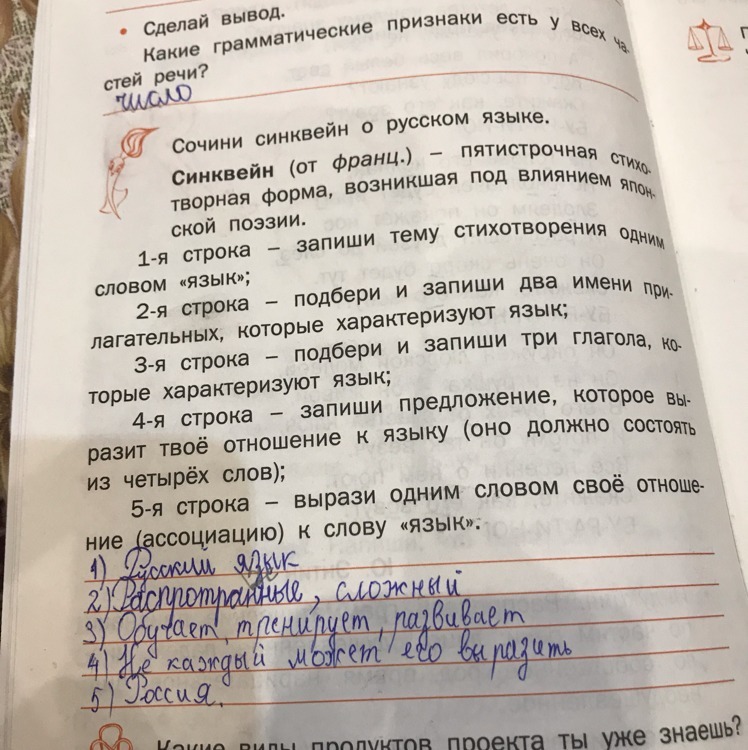 • Сделай вывод.
Какие грамматические признаки есть у всех ча-
стей речи?
число
Сочини синквейн о русском языке.
Синквейн (от франц.) – пятистрочная стихо-
творная форма, возникшая под влиянием япон-
ской поэзии.
1-я строка – запиши тему стихотворения одним
словом «язык»;
2-я строка – подбери и запиши два имени при-
лагательных, которые характеризуют язык;
3-я строка – подбери и запиши три глагола, ко-
торые характеризуют язык;
4-я строка – запиши предложение, которое вы-
разит твоё отношение к языку (оно должно состоять
из четырёх слов);
5-я строка – вырази одним словом своё отноше-
ние (ассоциацию) к слову «язык».
1) Русский язык
2) Распротранные, сложный
3) Обучает, тренирует, развивает
4) Не каждый может его выразить
5) Россия.
Какие виды продуктов проекта ты уже знаешь?